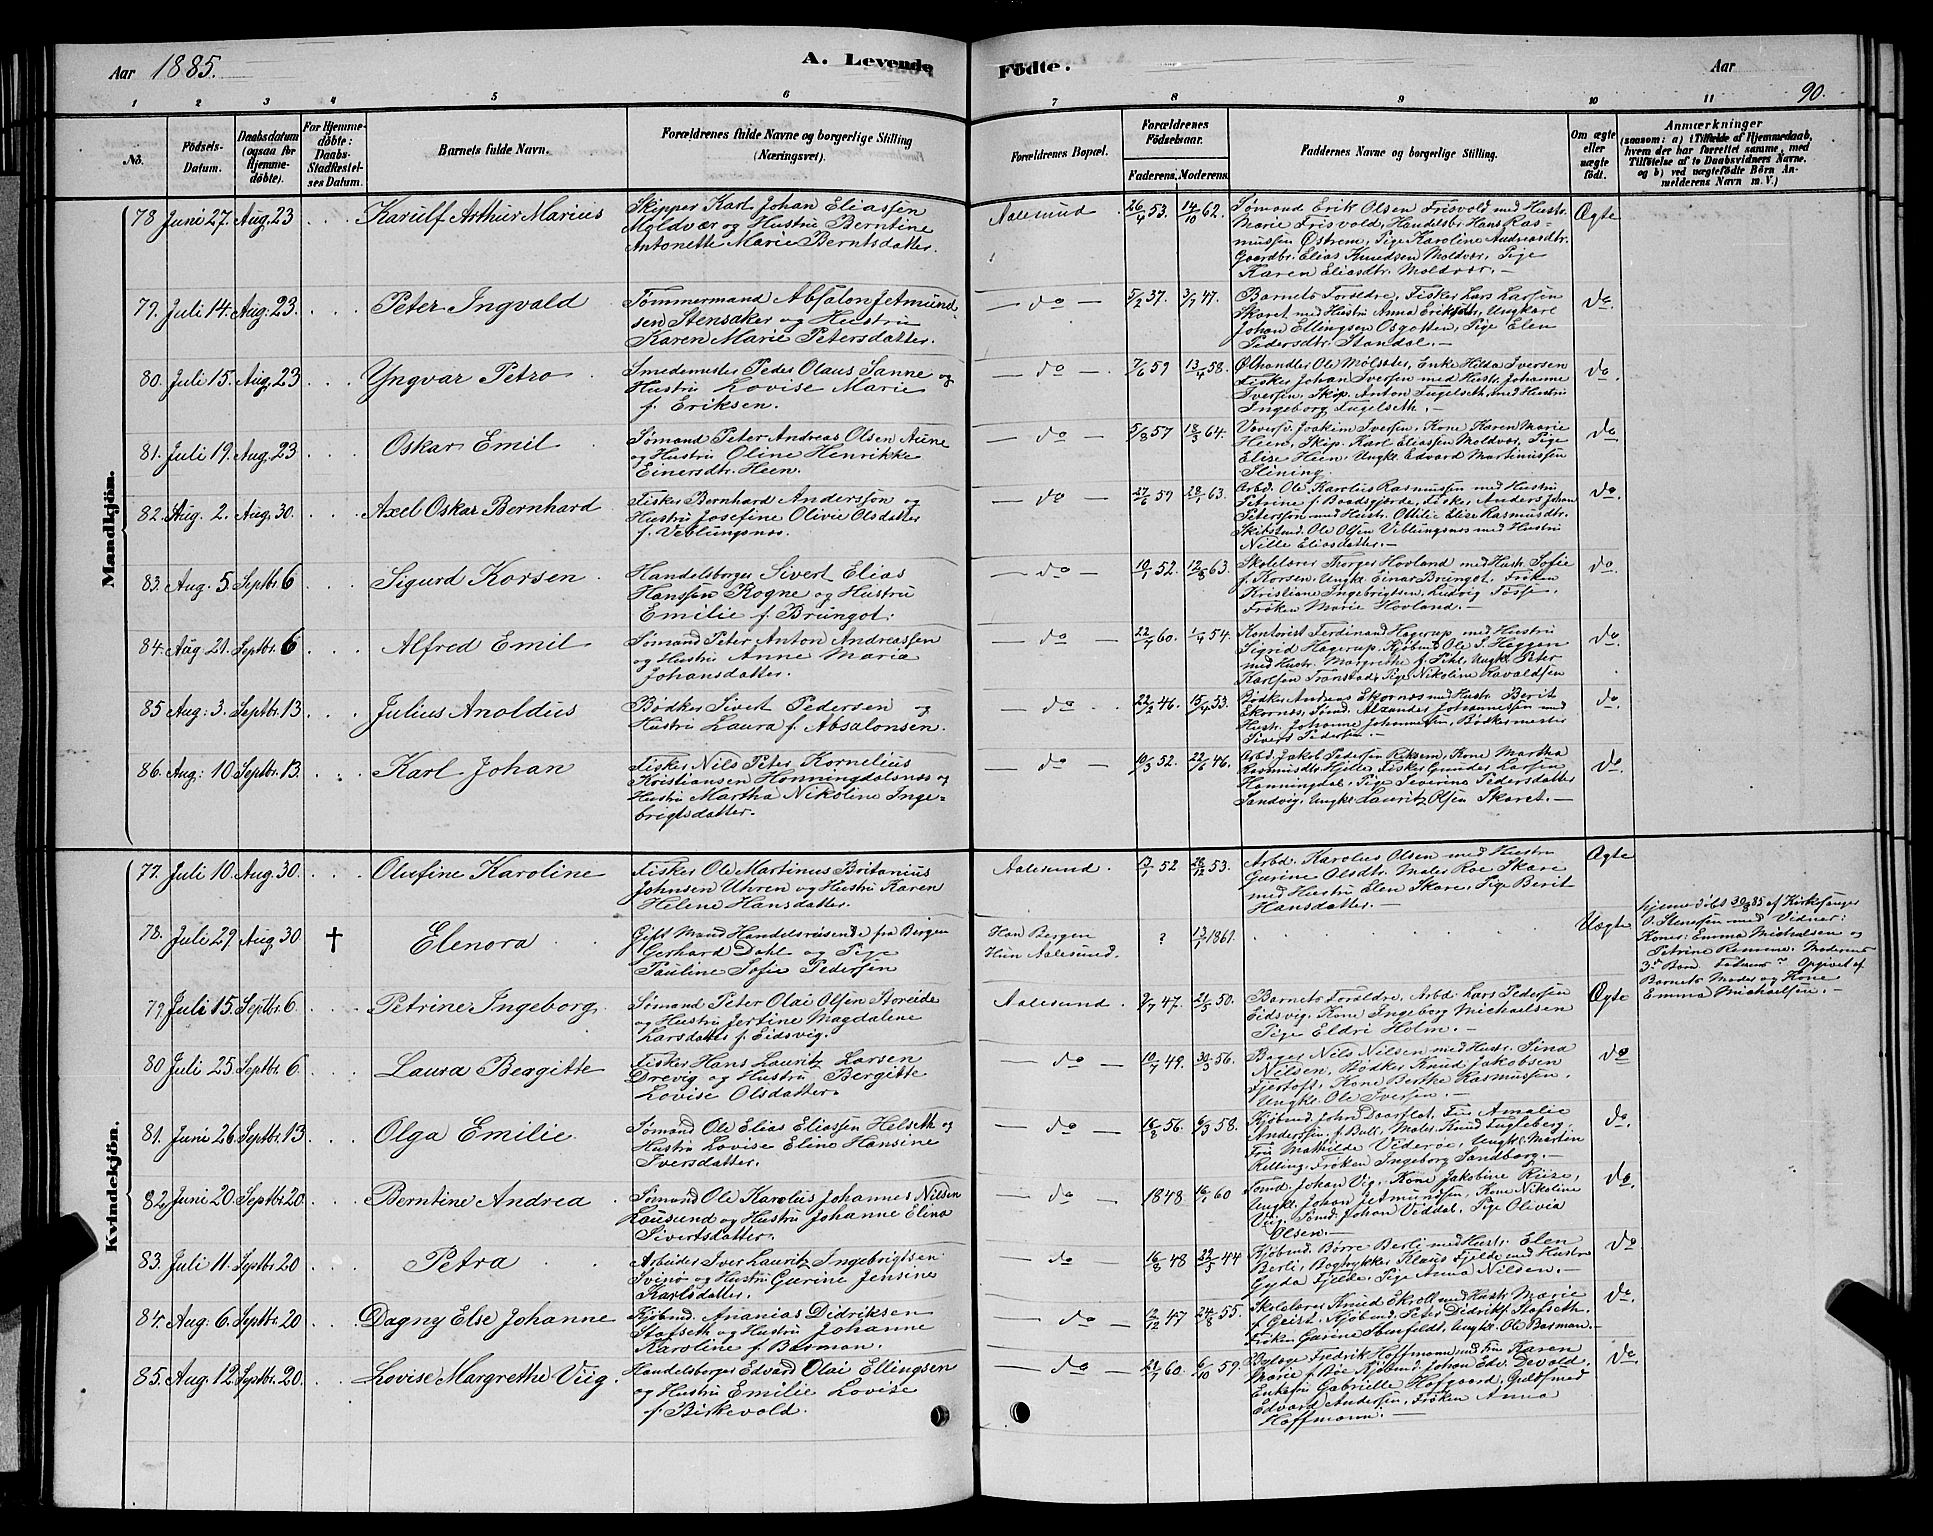 Aar 1885. A. Levende Födte. Aar 90.
1 2 3 4 5 6 7 8 9 10 11
No. Födsels-Datum. Daabsdatum (ogsaa for Hjemme-döbte). For Hjemme-döbte: Daabs-Stadfæstel-ses Datum. Barnets fulde Navn. Forældrenes fulde Navne og borgerlige Stilling (Næringsvei). Forældrenes Bopæl. Forældrenes Födselsaar. Faderens. Moderens. Faddernes Navne og borgerlige Stilling. Om ægte eller uægte födt. Anmærkninger (saasom: a) i Tilfælde af Hjemmedaab, hvem der har forrettet samme, med Tilföielse af to Daabsvidners Navne. og b) ved uægtefödte Börn An-melderens Navn m. V.)
Mandkjön.
78 Juni 27. Aug. 23 Karulf Arthur Marius Skipper Karl Johan Eliassen Aalesund 26/4 53. 14/10 62. Sømand Erik Olsen Frisvold med Hustr. Ægte
Moldvær og Hustru Berntine Marie Frisvold, Handelsb. Hans Ras-
Antonette Marie Berntsdatter. mussen Østrem, Pige Karoline Andreasdtr.
Gaardbr. Elias Knudsen Moldvær, Pige
Karen Eliasdtr. Moldvær. —
79. Juli 14. Aug. 23. Peter Ingvald Tømmermand Absalon Jetmund- — do — 5/2 37. 3/7 47. Barnets Forældre, Fisker Lars Larsen do.
sen Stensaker og Hustru Skaret med Hustru Anna Eriksdtr, Ungkarl
Karen Marie Petersdatter. Johan Ellingsen Osgotten, Pige Elen
Pedersdtr. Standal. —
80. Juli 15. Aug. 23 Yngvar Petro Smedemester Peder Olaus Sanne og — do —. 7/6 59 13/4 58. Ølhandler Ole Mølster, Enke Hilda Iversen do.
Hustru Lovise Marie Fisker Johan Iversen med Hustr. Johanne
f. Eriksen. Iversen, Skip. Anton Fugelseth, med Hustru
Ingeborg Fugelseth. —
81. Juli 19. Aug. 23 Oskar Emil Sømand Peter Andreas Olsen Aune — do — 5/8 57 18/3 64. Joakim Iversen, Kone Karen Marie do.
og Hustru Oline Henrikke Heen, Skip. Karl Eliassen Moldvær, Pige
Einersdtr. Heen. Elise Heen, Ungk. Edvard Martinussen
Slining.
82. Aug. 2. Aug. 30. Axel Oskar Bernhard Fisker Bernhard Andersson og — do — 27/6 59 28/1 63. Arbd. Ole Karolus Rasmussen med Hustru do.
Hustru Josefine Olivie Olsdatter Petrine f. Baadsgjerde, Fisker Anders Johan
f. Veblungsnes. Petersson med Hustr. Ottilie Elise Rasmusdtr.
Ole Olsen Veblungsnes med Hustru
Nille Eliasdatter. —
83. Aug. 5. Septbr. 6 Sigurd Korsen Handelsborger Sivert Elias — do — 10/1 52. 12/8 63. Skolelærer Thorger Hovland med Hustr. Sofie do.
Hanssen Rogne og Hustru f. Korsen, Ungk. Einar Brungot, Frøken
Emilie f. Brungot. Kristiane Ingebrigtsen, Ludvig
Frøken Marie Hovland. —
84. Aug. 21. Septbr. 6 Alfred Emil Sømand Peter Anton Andreassen — do — 22/7 60. 1/4 54. Kontorist Ferdinand Hagerup med Hustru do.
og Hustru Anne Marie Sigrid Hagerup, Kjøbmd Ole S. Heggen
Johansdatter. med Hustr. Margrethe f. Pihl, Ungk. Peter
Karlsen Transtad, Pige Nikoline Havaldsen
85 Aug: 3. Septbr. 13. Julius Anoldus Bødker Sivert Pedersen og — do —. 22/2 46. 15/4 53. Bødker Andreas Ekornes med Hustr. Berit do.
Hustru Laura f. Absalonsen. Ekornes, Sømd. Alexander Johannessen med
Hustr. Johanne Johannessen, Bødkermester
Sivert Pedersen. —
86. Aug: 10 Septbr. 13. Karl Johan Fisker Nils Peter Kornelius — do — 10/3 52. 22/6 46. Arbd. Jakob Pedersen Riksem, Kone Martha do.
Kristiansen Honningdalsnes og Rasmusdtr. Hjelle, Fisker Gunder Larsen
Hustru Martha Nikoline Inge- Honningdal, Pige Severine Pedersdatter
brigtsdatter. Sandvig, Ungk. Lauritz Olsen Skaret. —
Kvindekjön.
77. Juli 10. Aug. 30. Olufine Karoline Fisker Ole Martinus Britanius Aalesund. 52 26/12 53. Arbd. Karolus Olsen med Hustru Ægte
Johnsen Uhren og Hustru Karen Gurine Olsdtr. Maler Roe Skare
Helene Hansdatter. med Hustru Elen Skare, Pige Berit
Hansdatter. —
78. Juli 29 Aug. 30 † Elenora Gift Mand Handelsreisende fra Bergen Han Bergen ? 13/7 1861. Uægte hjemmedöbt 30/8 85 af Kirkesanger
Gerhard Dahl og Pige Hun Aalesund. O. Stenesen med Vidner:
Pauline Sofie Pedersen Koner: Emma Michalsen og
Petrine Remme. Moderens
3die Barn. Opgivet af
Barnets Moder og Kone
Emma Michaelsen. —
79. Juli 15. Septbr. 6. Petrine Ingeborg. Sømand Peter Olai Olsen Storeide Aalesund. 9/7 47. 21/5 50. Barnets Forældre, Arbd. Lars Pedersen Ægte
og Hustru Jertine Magdalene Eidsvig, Kone Ingeborg Michaelsen
Larsdatter f. Eidsvig. Pige Eldri Holm. —
80 Juli 25 Septbr. 6. Laura Bergitte Fisker Hans Lauritz Larsen — do — 10/7 49. 30/3 56. Bager Nils Nilsen med Hustr. Sina do
Drevig og Hustru Bergitte Nilsen, Bødker Knud Jakobsen
Lovise Olsdatter. Fjertoft, Kone Berthe Rasmussen,
Ungk. Ole Iversen. —
81. Juni 26. Septbr. 13 Olga Emilie Sømand Ole Elias Eliassen Helseth og — do — 16/8 56. 6/3 58. Kjøbmd. John Daarflot, Fru Amalie do.
Hustru Lovise Eline Hansine Andersen f. Bull, Maler Knud Fugleberg,
Iversdatter. Fru Mathilde Viderøe, Ungk. Morten
Relling, Frøken Ingeborg Sandborg. —
82. Juni 20. Septbr. 20 Berntine Andrea Sømand Ole Karolus Johannes Nilsen — do — 1848 16/1 60 Sømd. Johan Vig, Kone Jakobine Riise, do.
Lausund og Hustru Johanne Elina Ungk. Johan Jetmundsen, Kone Nikoline
Sivertsdatter. Viig, Sømd. Johan Viddal, Pige Olivia
Olsen. —
83. Juli 11. Septbr. 20 Petra Arbeider Iver Lauritz Ingebrigtsen — do — 16/8 48 22/5 44 Kjøbmd. Børre Berli med Hustr. Elen do
Svinø og Hustru Gurine Jensine Berli, Bogtrykker Klaus Fjelde med Hustru
Karlsdatter. Gyda Fjelde, Pige Anna Nilsen. —
84. Aug. 6. Septbr. 20 Dagny Else Johanne Kjøbmd. Ananias Didriksen — do — 12/12 47 24/8 55. Skolelærer Knud Skroll med Hustr. Marie do.
Stafseth og Hustru Johanne f. Geist, Kjøbmd. Peter Didriks. Stafseth,
Karoline f. Barman. Frøken Gurine Ulvenfeldt, Ungk. Ole Barman. —
85. Aug. 12. Septbr. 20. Lovise Margrethe Viig. Handelsborger Edvard Olai Ellingsen — do — 21/7 60. 6/10 59. Byfoge Fredrik Hoffmann med Fru Karen do
og Hustru Emilie Lovise Marie f. Bøe, Kjøbmd. Johan Edv. Devold,
f. Birkevold. Enkefru Gabrielle Hofgaard, Guldsmed
Edvard Andersen, Frøken Anna
Hoffmann. —